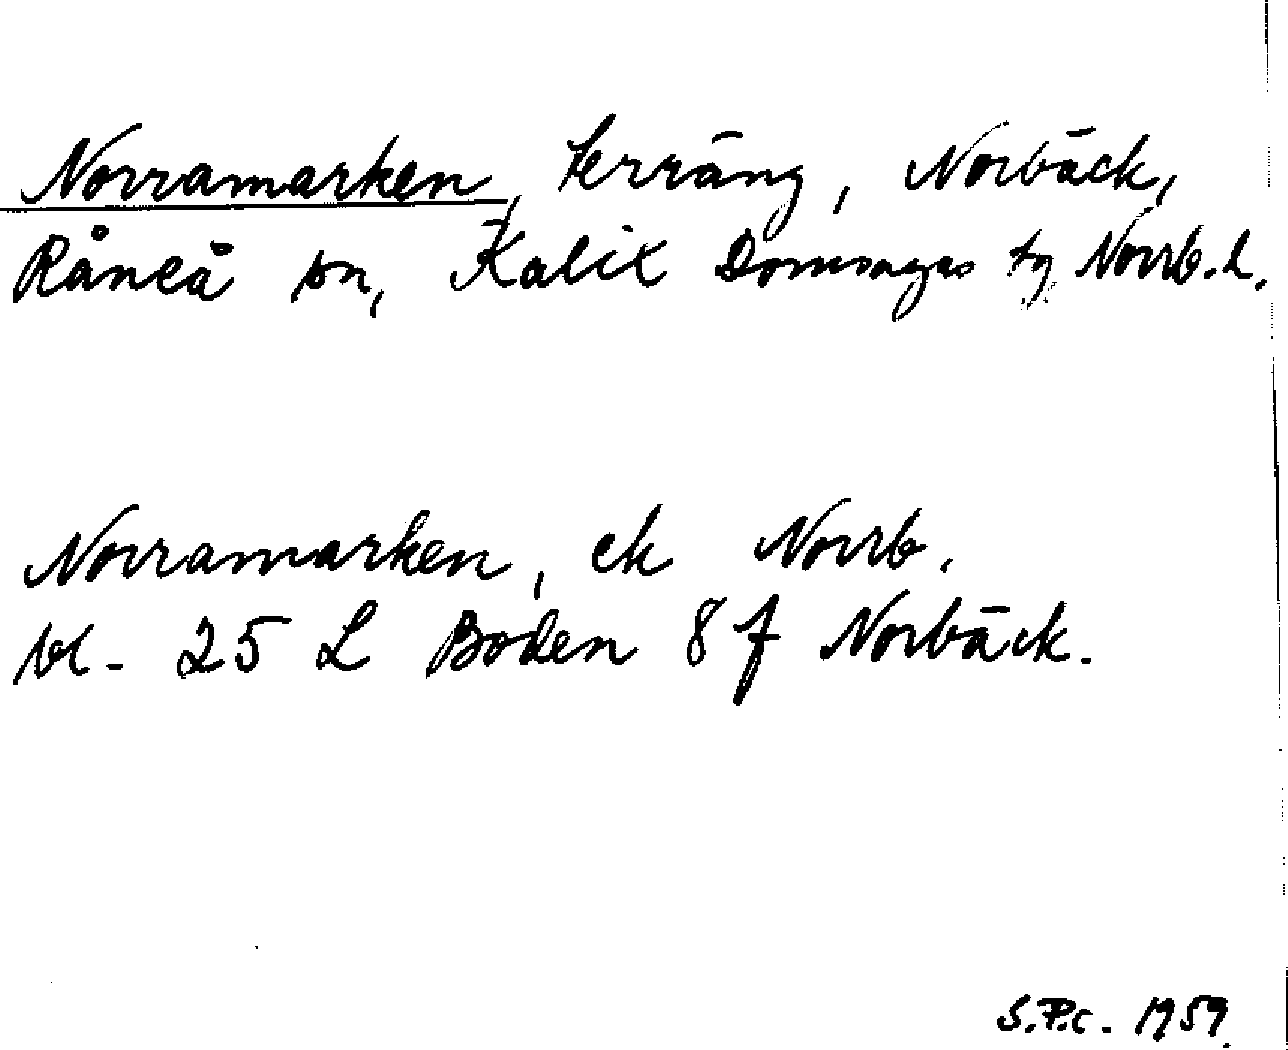 Norramarken, terräng, Norbäck,
Råneå sn, Kalix Domsagas tg Norrb.l.
Norramarken, ek Norrb.
bl. 25 L Boden 8 f Norbäck.
S.P.c. 1959.